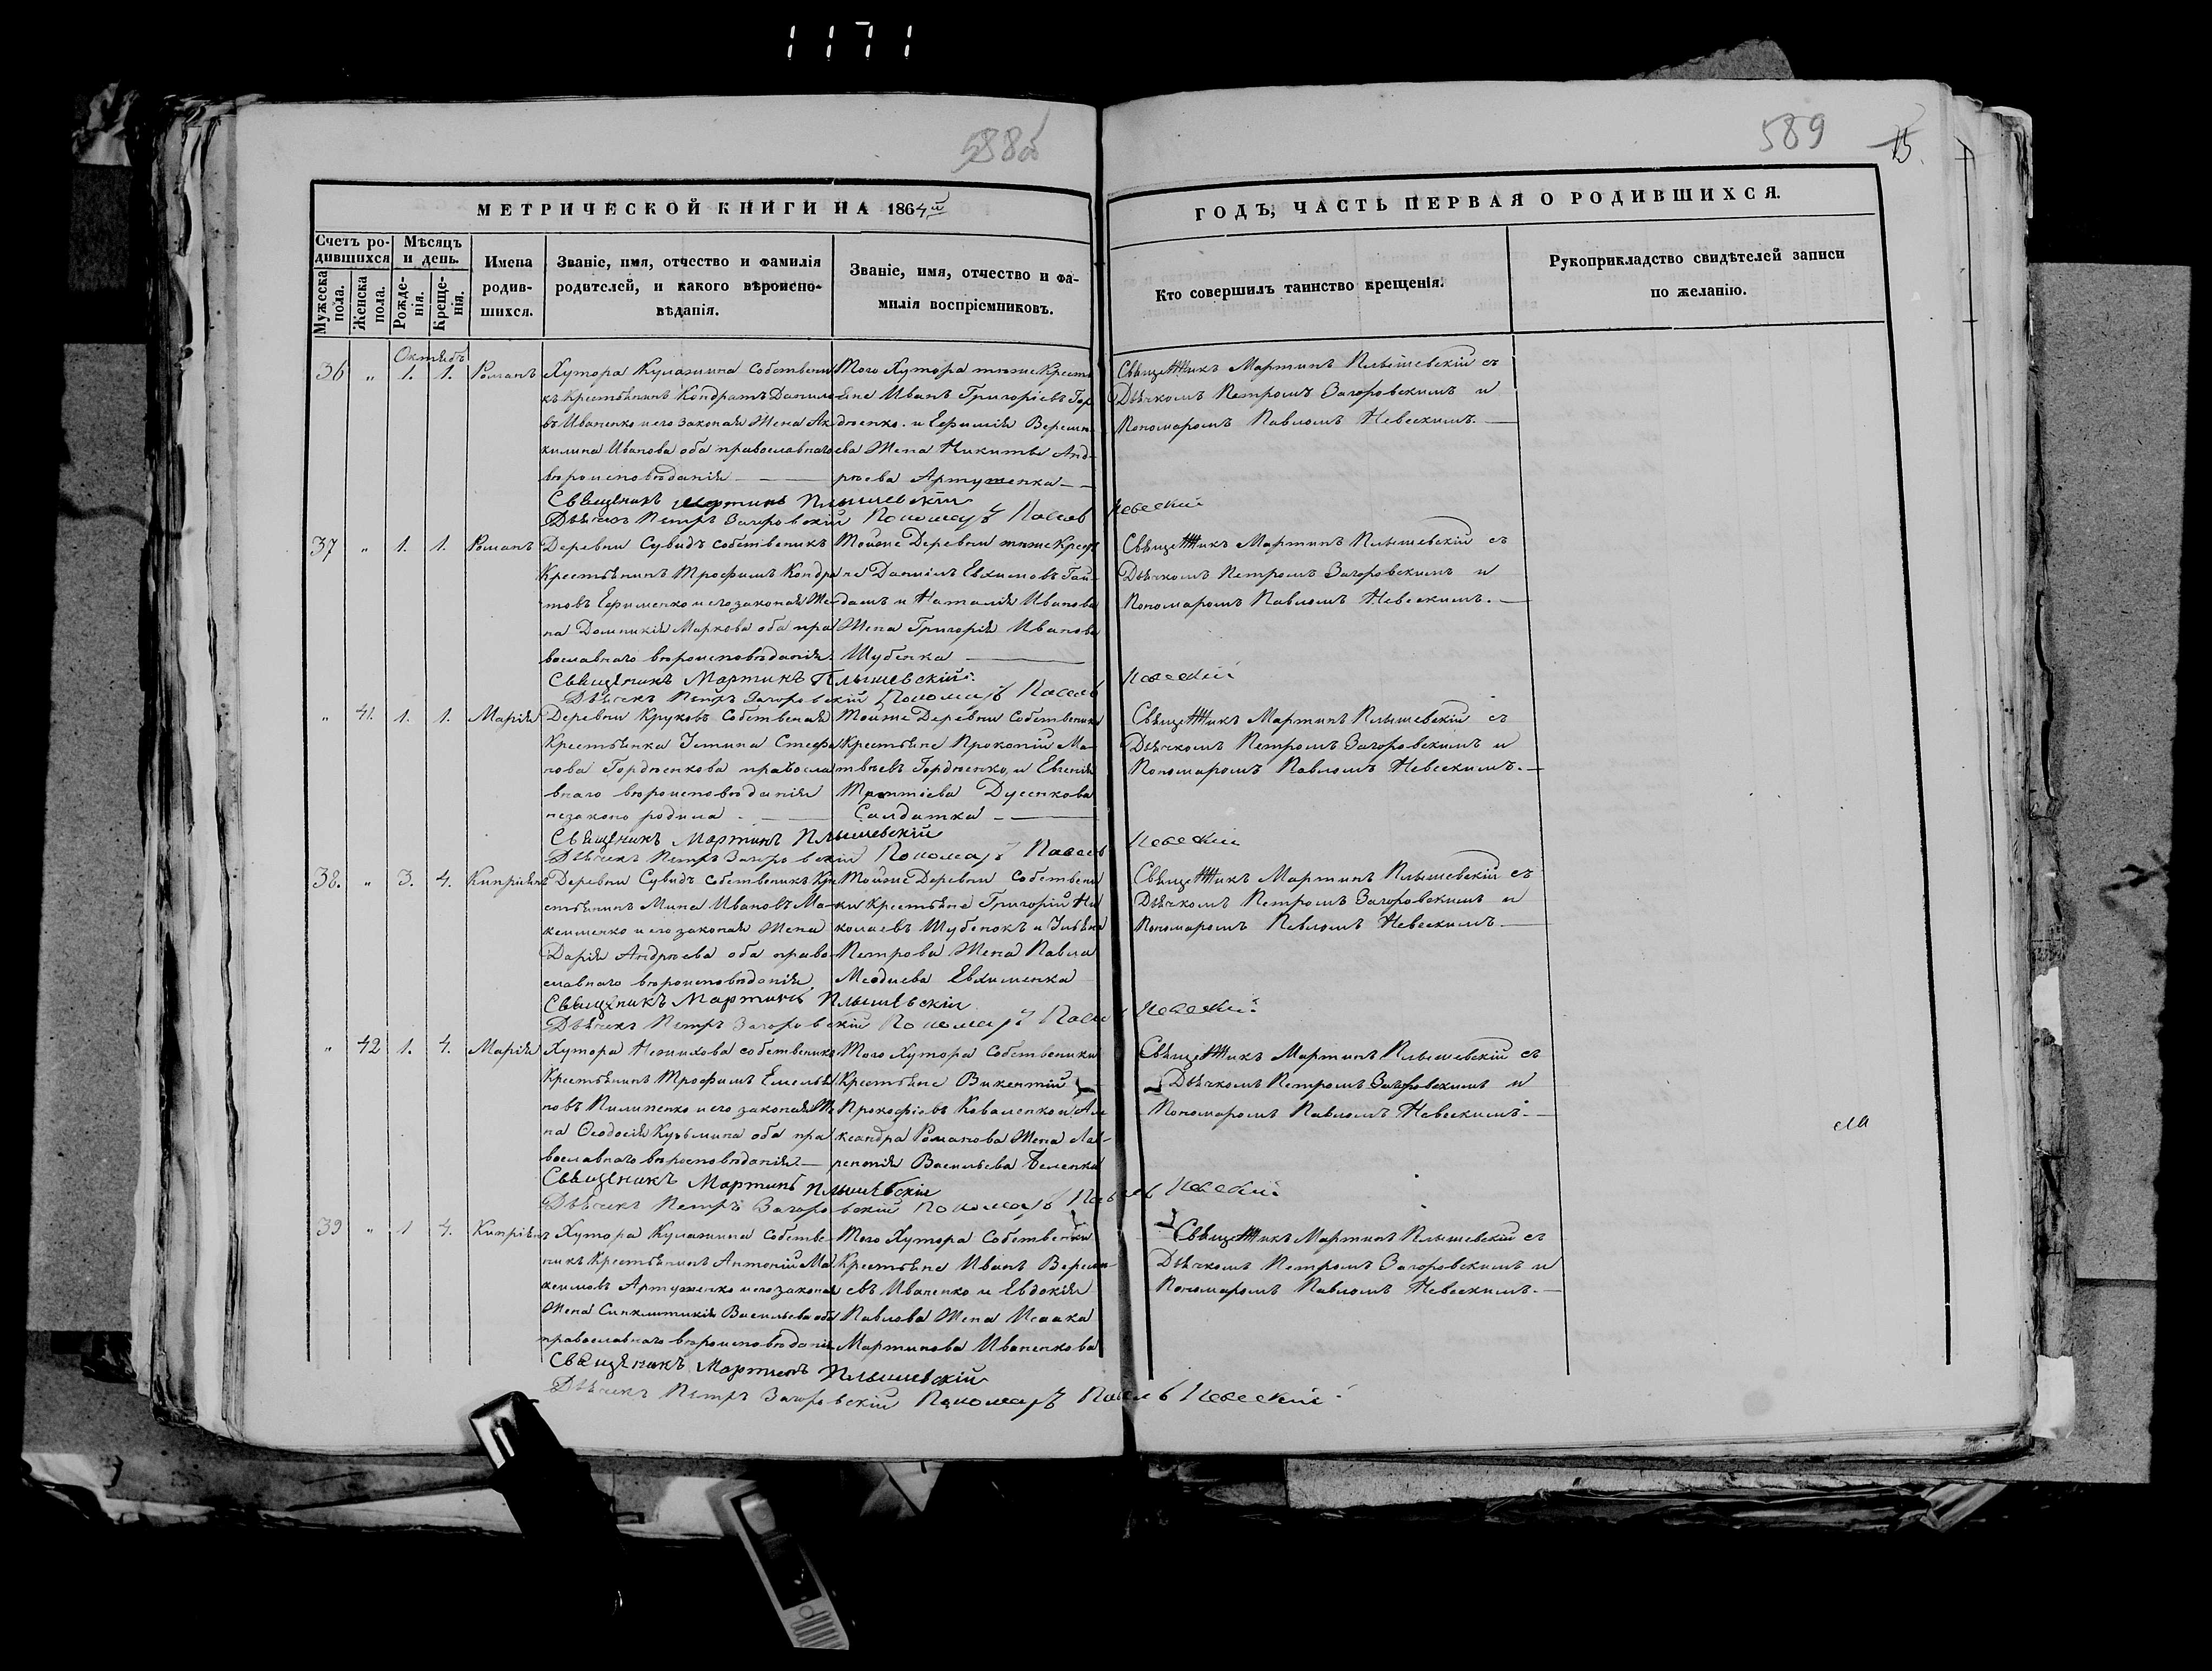 1171
588об
589
15.
МЕТРИЧЕСКОЙ КНИГИ НА 1864й
ГОДЪ, ЧАСТЬ ПЕРВАЯ О РОДИВШИХСЯ.
Счетъ ро-
дившихся
Мужеска
пола.
Женска
пола.
Мѣсяцъ
и день.
Рожде-
нія.
Креще-
нія.
Имена
родив-
шихся.
Званіе, имя, отчество и фамилія
родителей, и какого вѣроиспо-
вѣданія.
Званіе, имя, отчество и фа-
милія воспріемниковъ.
Кто совершилъ таинство крещенія.
Рукоприкладство свидѣтелей записи
по желанію.
Октябь
36 " 1. 1. Романъ
Хутора Кулажина Собствени
къ Крестьянинъ Кондратъ Данило
въ Иваненко и его законая Жена Ак
килина Иванова оба православнаго
вѣроисповѣданія
Того Хутора тиже Кресть
яне Иванъ Григоріевъ Гор
дѣенко. и Ефимія Вереми
ева Жена Никиты Анд-
рѣева Артуменка
Священикъ Мартинъ Плышевскій съ
Дьячкомъ Петромъ Загоровскимъ и
Пономаромъ Павломъ Невескимъ.
Священикъ Мартинъ Плышевскій
Дьячекъ Петръ Загоровскій Пономаръ Павелъ Невескій
37 " 1. 1. Романъ
Деревни Сувидъ собственикъ
Крестьянинъ Трофимъ Кондра
товъ Ефименко и его законая Же
на Домникія Маркова оба пра
вославнаго вѣроисповѣданія.
Тойже Деревни тиже Крест
не Даніилъ Евхимовъ Гай-
дамъ и Наталія Иванова
Жена Григорія Иванова
Шубенка
Священикъ Мартинъ Плышевскій съ
Дьячкомъ Петромъ Загоровскимъ и
Пономаромъ Павломъ Невескимъ.
Священикъ Мартинъ Плышевскій.
Дьячекъ Петръ Загоровскій Пономаръ Павелъ Невескій
" 41. 1. 1. Марія
Деревни Круковъ Собственая
Крестьянка Устина Стефа
нова Гордѣенкова правосла
внаго вѣроисповѣданія
незаконо родила
Тойже Деревни Собственики
Крестьяне Прокопій Ма-
твѣевъ Гордѣенко, и Евгенія
Дусенкова
Салдатка
Священикъ Мартинъ Плышевскій съ
Дьячкомъ Петромъ Загоровскимъ и
Пономаромъ Павломъ Невескимъ.
Священикъ Мартинъ Плышевскій
Дьячекъ Петръ Загоровскій Пономаръ Павелъ Невескій
38. " 3. 4. Кипріянъ
Деревни Сувидъ Собственикъ Кре
стьянинъ Мина Ивановъ Ма-
ксименко и его законая Жена
Дарія Андрѣева оба право-
славнаго вѣроисповѣданія
Тойже Деревни Собствени
ки Крестьяне Григорій Ни
колаевъ Шубенокъ и Ульяна
Петрова Жена Павла
Евхименка
Священикъ Мартинъ Плышевскій съ
Дьячкомъ Петромъ Загоровскимъ и
Пономаромъ Павломъ Невескимъ
Священикъ Мартинъ Плышевскій
Дьячекъ Петръ Загоровскій Пономаръ Павелъ Невескій
" 42 1. 4. Марія
Хутора собственикъ
Крестьянинъ Трофимъ Емелья
новъ Пилипенко и его законая Же
на Ѳеодосія Кузьмина оба пра
вославнаго вѣроисповѣданія.
Того Хутора Собственики
Крестьяне Викентій
Прокофіевъ Коваленко и Але
ксандра Романова Жена Лав-
рентія Васильева Беленка
Священикъ Мартинъ Плышевскій съ
Дьячкомъ Петромъ Загоровскимъ и
Пономаромъ Павломъ Невескимъ.
Священикъ Мартинъ Плышевскій
Дьячекъ Петръ Загоровскій Пономаръ Павелъ Невескій
39 " 1 4. Кипріянъ
Хутора Кулажина Собстве-
никъ Крестьянинъ Антоній Ма
ксимовъ Артуменко и его законая
Жена Синклитикія Васильева оба
православнаго вѣроисповѣданія
Того Хутора Собственики
Крестьяне Иванъ Вереми-
евъ Иваненко и Евдокія
Павлова Жена Исаака
Мартинова Иваненкова
Священикъ Мартинъ Плышевскій съ
Дьячкомъ Петромъ Загоровскимъ и
Пономаромъ Павломъ Невескимъ.
Священикъ Мартинъ Плышевскій
Дьячекъ Петръ Загоровскій Пономаръ Павелъ Невескій